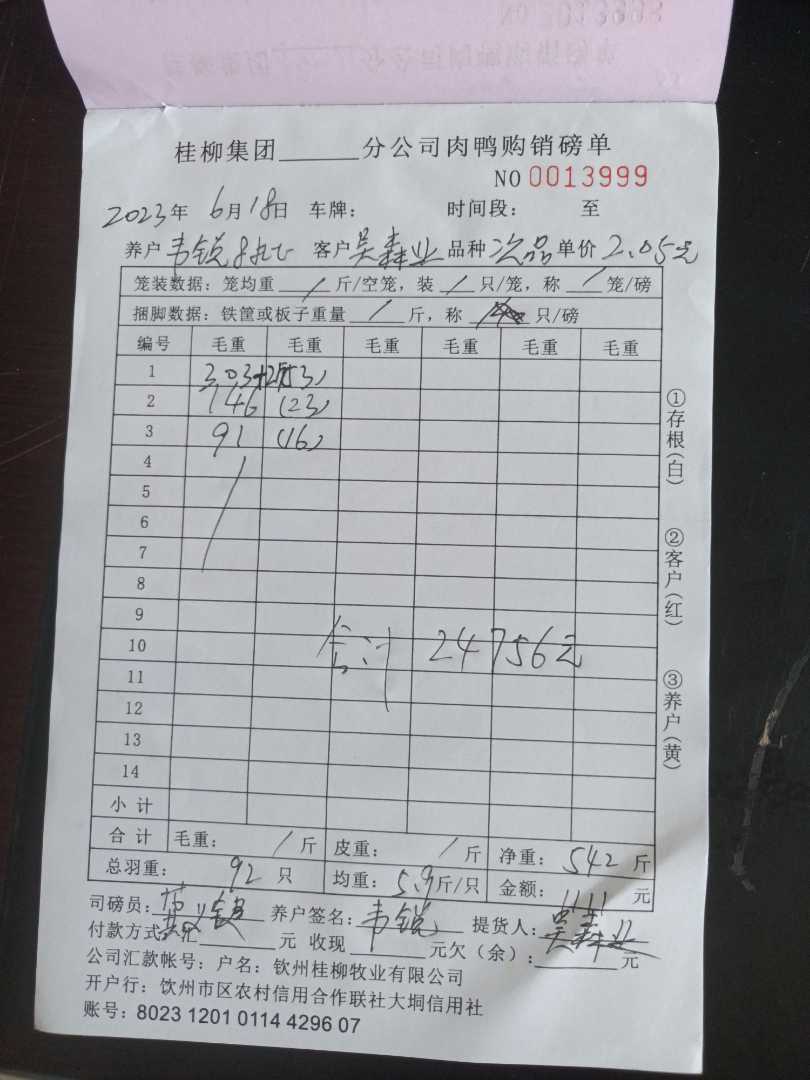 桂柳集团______分公司肉鸭购销磅单
NO 0013999
2023年 6月18日 车牌: 时间段: 至
养户 韦锐 客户 吴森业 品种 次品 单价 2.05元
笼装数据: 笼均重 / 斤/空笼, 装 / 只/笼, 称 / 笼/磅
捆脚数据: 铁筐或板子重量 / 斤, 称 只/磅
编号 毛重 毛重 毛重 毛重 毛重 毛重
1 303+2 (53)
2 146 (23)
3 91 (16)
4
5
6
7
8
9
10 合计 24756元
11
12
13
14
小计
合计 毛重: / 斤 皮重: / 斤 净重: 542 斤
总羽重: 92 只 均重: 5.9 斤/只 金额: 1111 元
司磅员: 养户签名: 韦锐 提货人: 吴森业
付款方式: 汇______元 收现______元欠(余): ______元
公司汇款帐号: 户名: 钦州桂柳牧业有限公司
开户行: 饮州市区农村信用合作联社大垌信用社
账号: 8023 1201 0114 4296 07
①存根(白)
②客户(红)
③养户(黄)